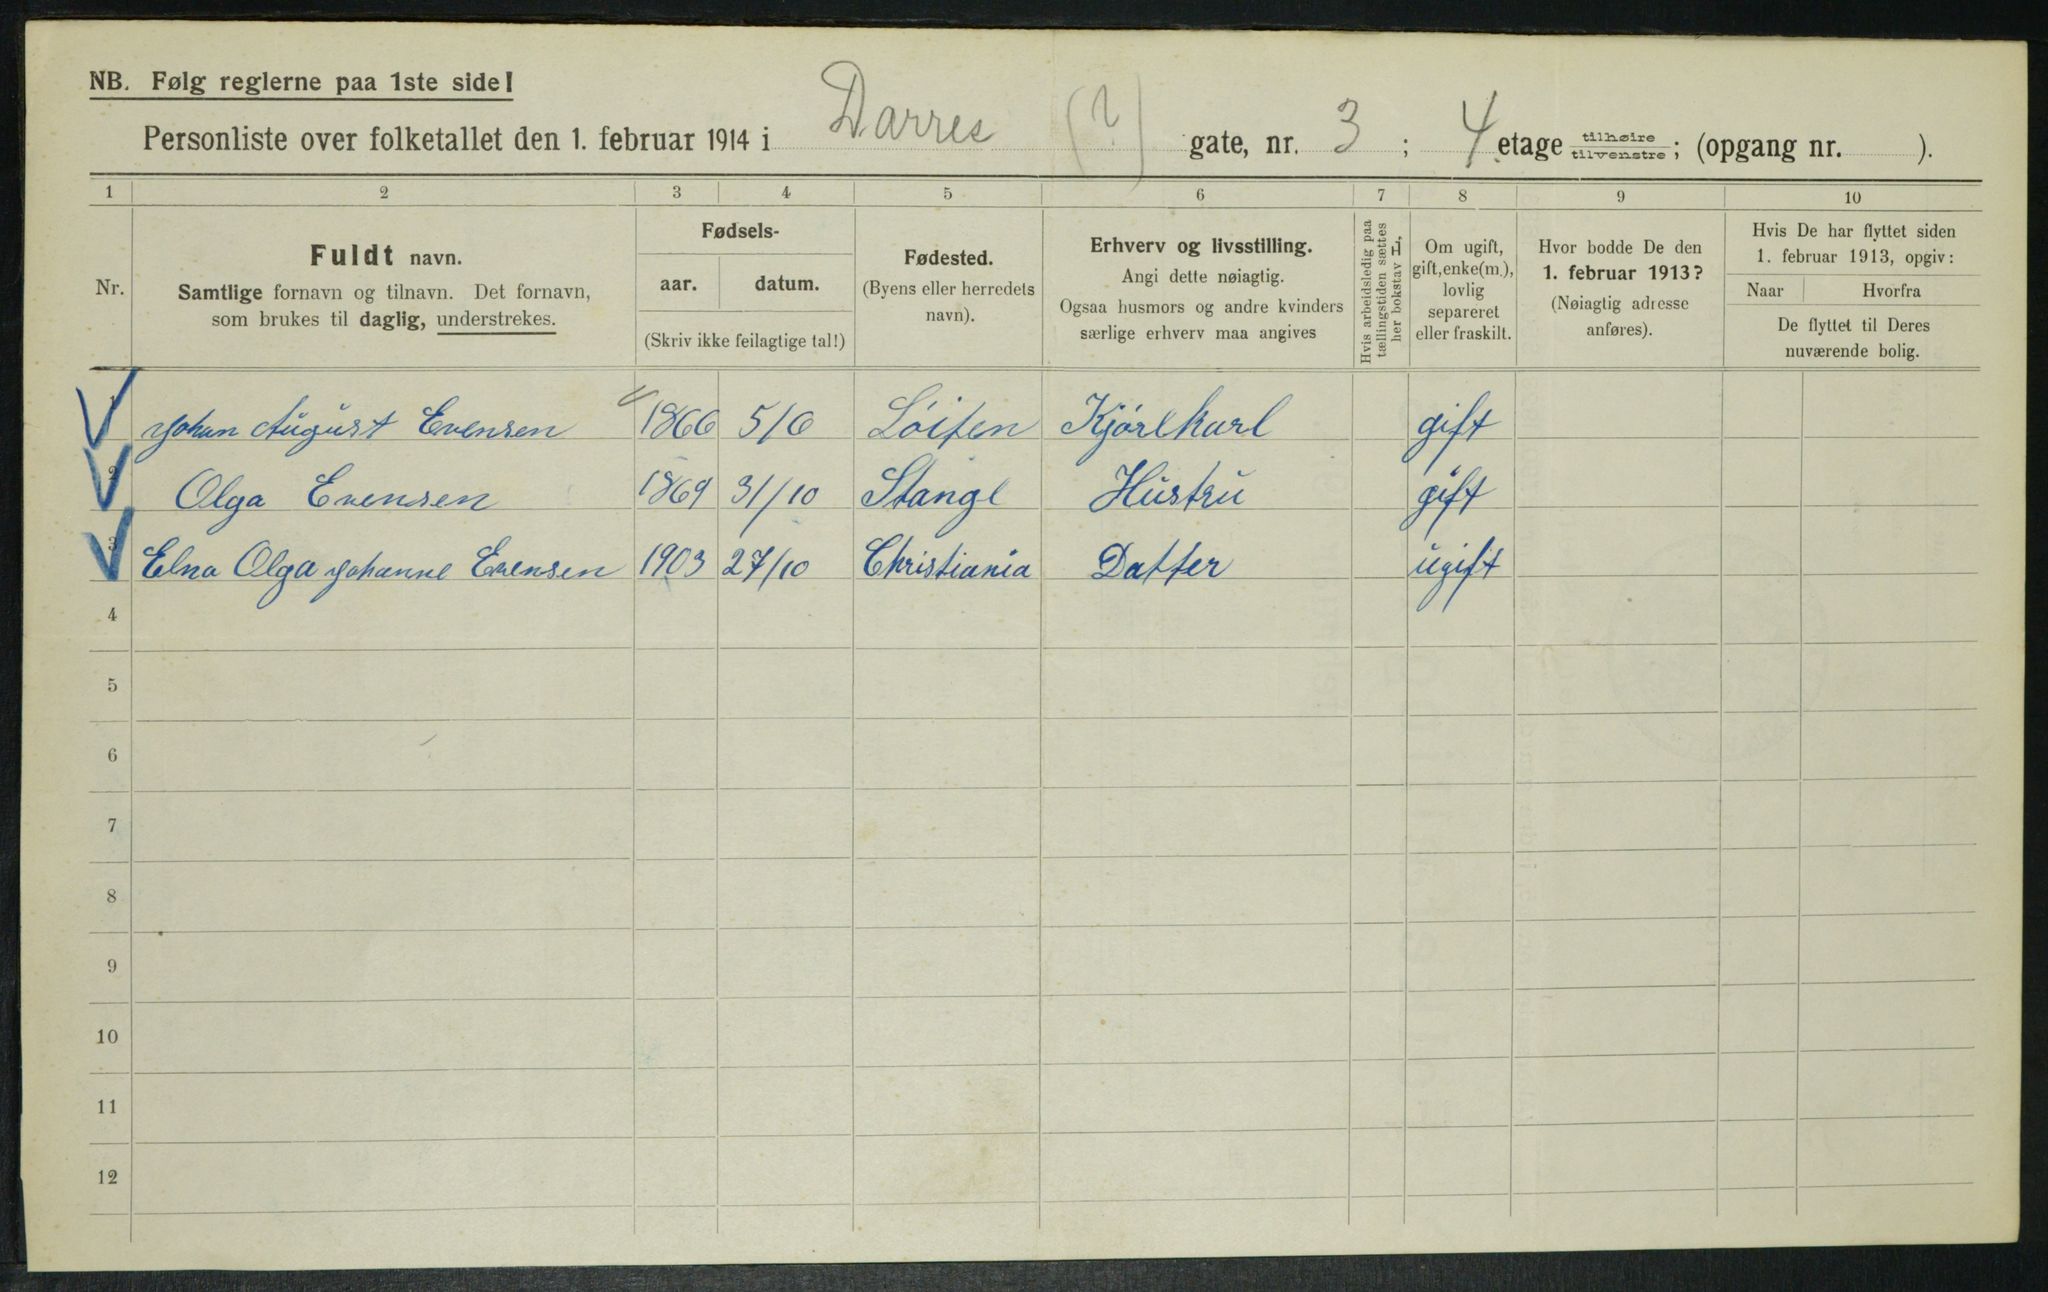 NB. Følg reglerne paa 1ste side!
Personliste over folketallet den 1. februar 1914 i Darres (?) gate, nr. 3 ; 4 etage tilhøire tilvenstre; (opgang nr. ).
1 2 3 4 5 6 7 8 9 10
Nr.
Fuldt navn.
Samtlige fornavn og tilnavn. Det fornavn,
som brukes til daglig, understrekes.
Fødsels-
aar. datum.
(Skriv ikke feilagtige tal!)
Fødested.
(Byens eller herredets
navn).
Erhverv og livsstilling.
Angi dette nøiagtig.
Ogsaa husmors og andre kvinders
særlige erhverv maa angives
Hvis arbeidsledig paa
tællingstiden sættes
her bokstav L.
Om ugift,
gift, enke(m.),
lovlig
separeret
eller fraskilt.
Hvor bodde De den
1. februar 1913?
(Nøiagtig adresse
anføres).
Hvis De har flyttet siden
1. februar 1913, opgiv:
Naar Hvorfra
De flyttet til Deres
nuværende bolig.
1 Johan August Evensen 1866 5/6 Löiten Kjörekarl gift
2 Olga Evensen 1869 31/10 Stange Hustru gift
3 Elna Olga Johanne Evensen 1903 27/10 Christiania Datter ugift
4
5
6
7
8
9
10
11
12